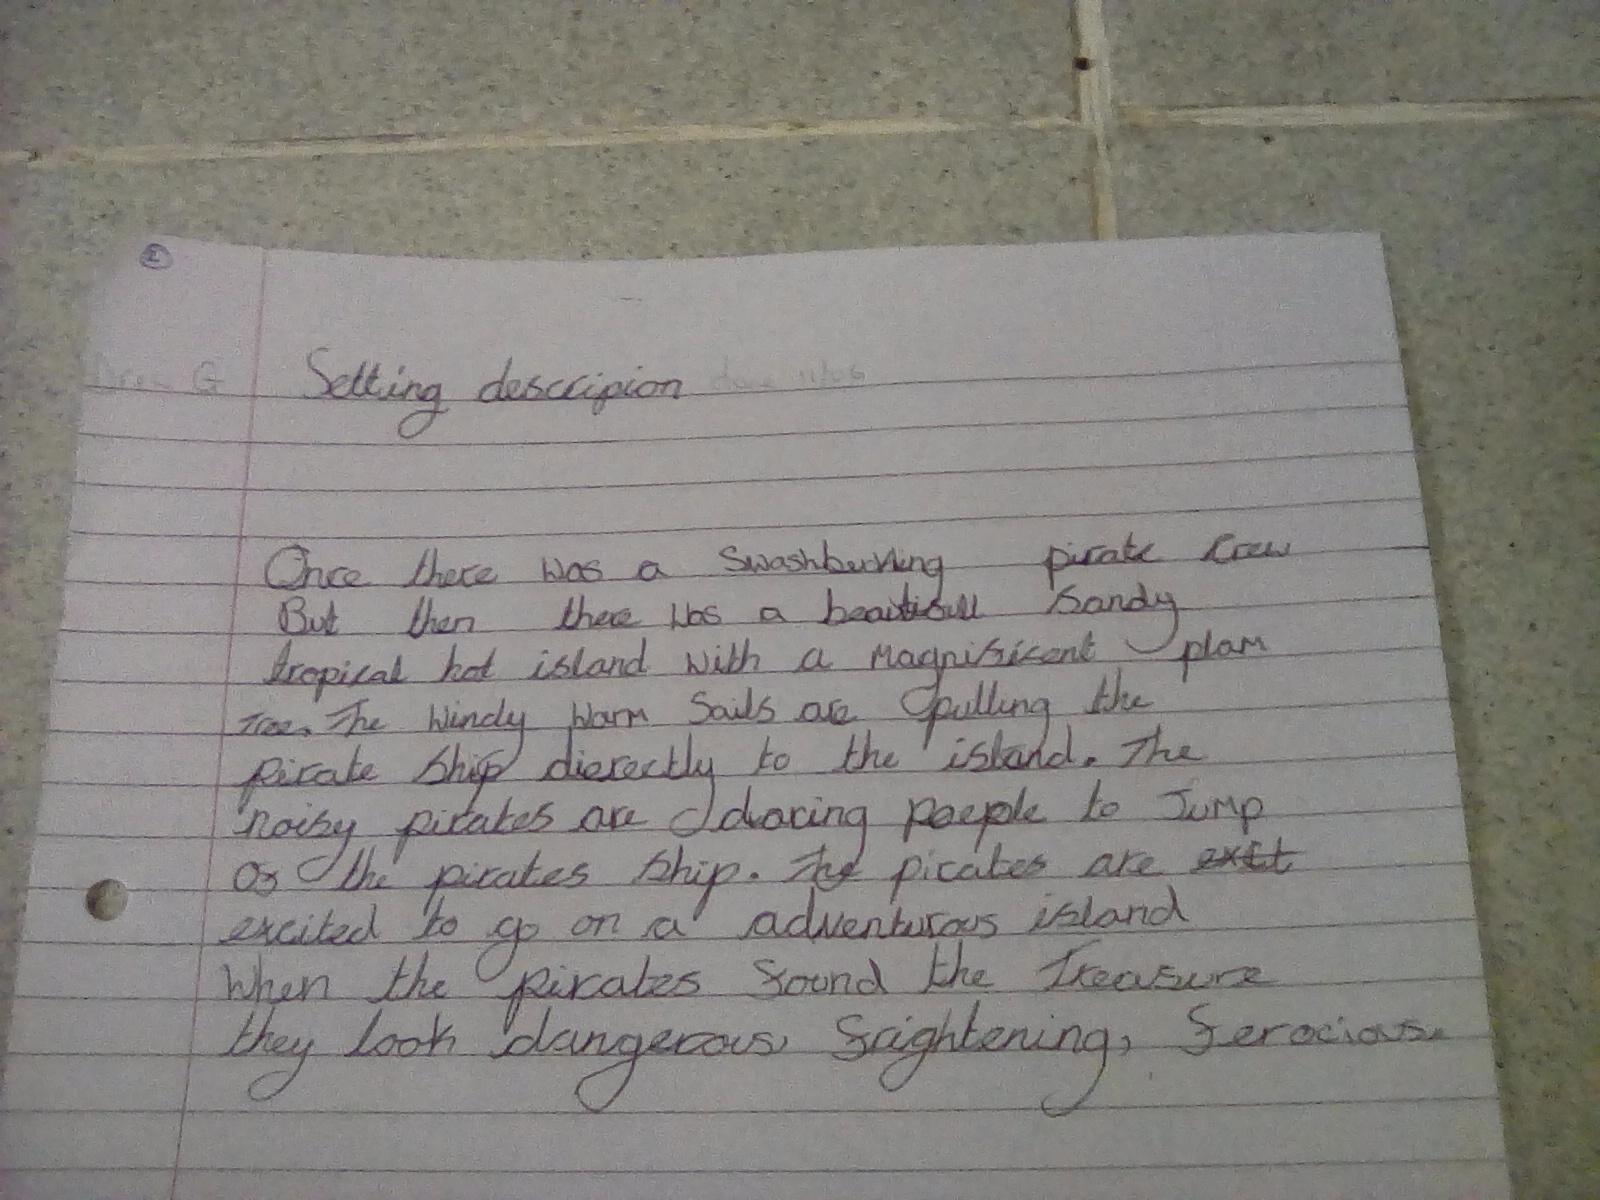 Setting descripion
Once there was a Swashbuckling pirate crew
But then there was a beautifull sandy
tropical hot island with a magnificent plam
Tree. The windy warm Sails are pulling the
pirate ship dierectly to the island. The
noisy pirates are daring paeple to Jump
of the pirates ship. The pirates are exit
excited to go on a adventurous island
When the pirates found the Treasure
they look dangerous, frightening, ferocious